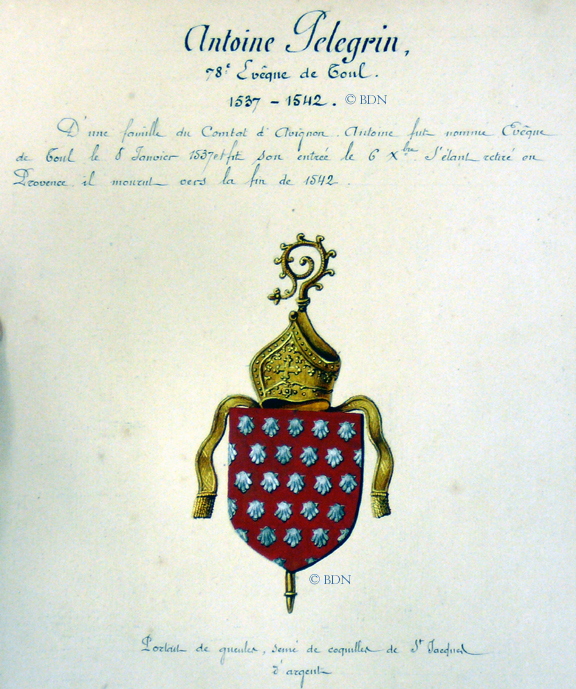 Antoine Pelegrin,
78e Evêque de Toul.
1537 - 1542. © BDN
D'une famille du Comtat d'Avignon. Antoine fut nommé Evêque
de Toul le 8 Janvier 1537 et fit son entrée le 6 Xbre S'étant retiré en
Provence il mourut vers la fin de 1542.
© BDN
Portait de gueules, semé de coquilles de St Jacques
d'argent